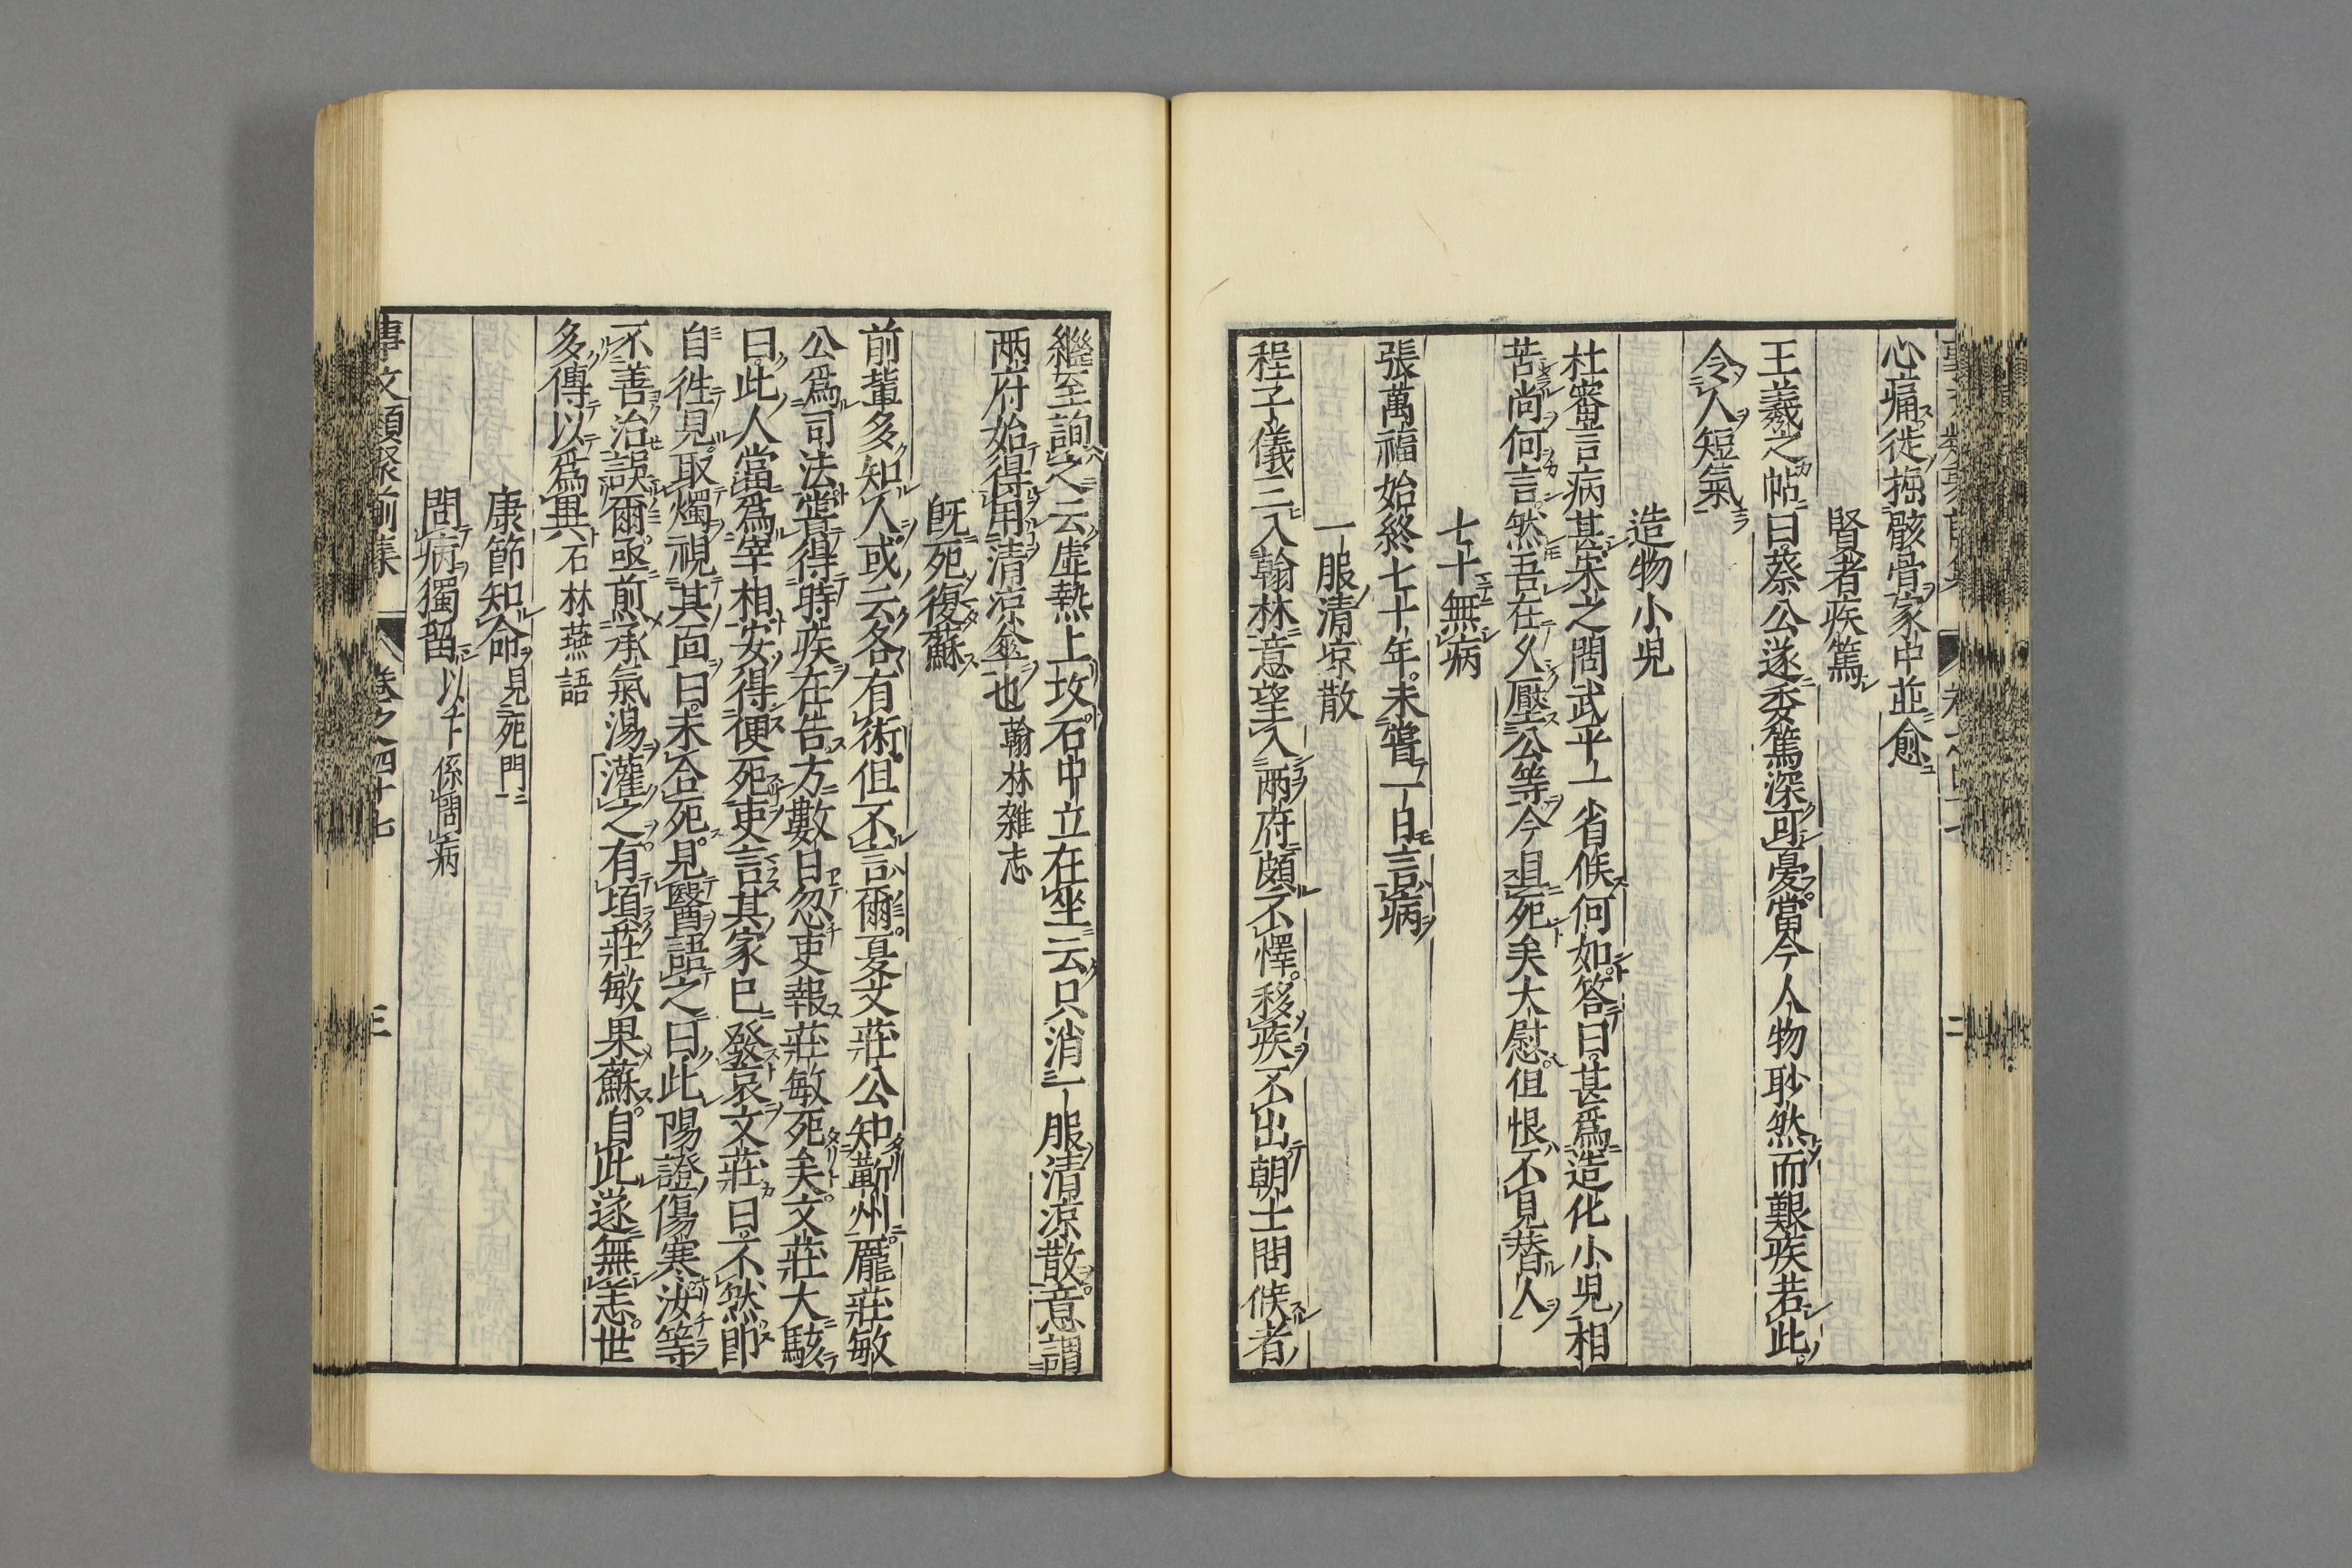 心痛徙掘骸骨家中並愈
賢者疾篤
王羲之帖曰蔡公遂委篤深可憂當今人物眇然而艱疾若此
令人短氣
造物小兒
杜審言病甚宋之問武平一省候何如答曰甚爲造化小兒相
苦尚何言然吾在久壓公等今且死矣大慰但恨不見替人
七十無病
張萬福始終七十年未嘗一日言病
一服清凉散
程子儀三入翰林意望入兩府頗不懌移疾不出朝士問候者
繼至詢之云虛熱上攻石中立在坐云只消一服清凉散意謂
兩府始得用清凉傘也 翰林雜志
既死復蘇
前輩多知人或云各有術但不言爾夏文莊公知蘄州龐莊敏
公爲司法嘗得時疾在告方數日忽吏報莊敏死矣文莊大駭
曰此人當爲宰相安得便死吏言其家已發哀文莊曰不然即
自徃見取燭視其面曰未合死見醫語之曰此陽證傷寒汝等
不善治誤爾亟煎承氣湯灌之有頃莊敏果蘇自此遂無恙世
多傳以爲異 石林燕語
康節知命 見死門
問病獨留 以下係問病
事文類聚前集 卷之四十七 三